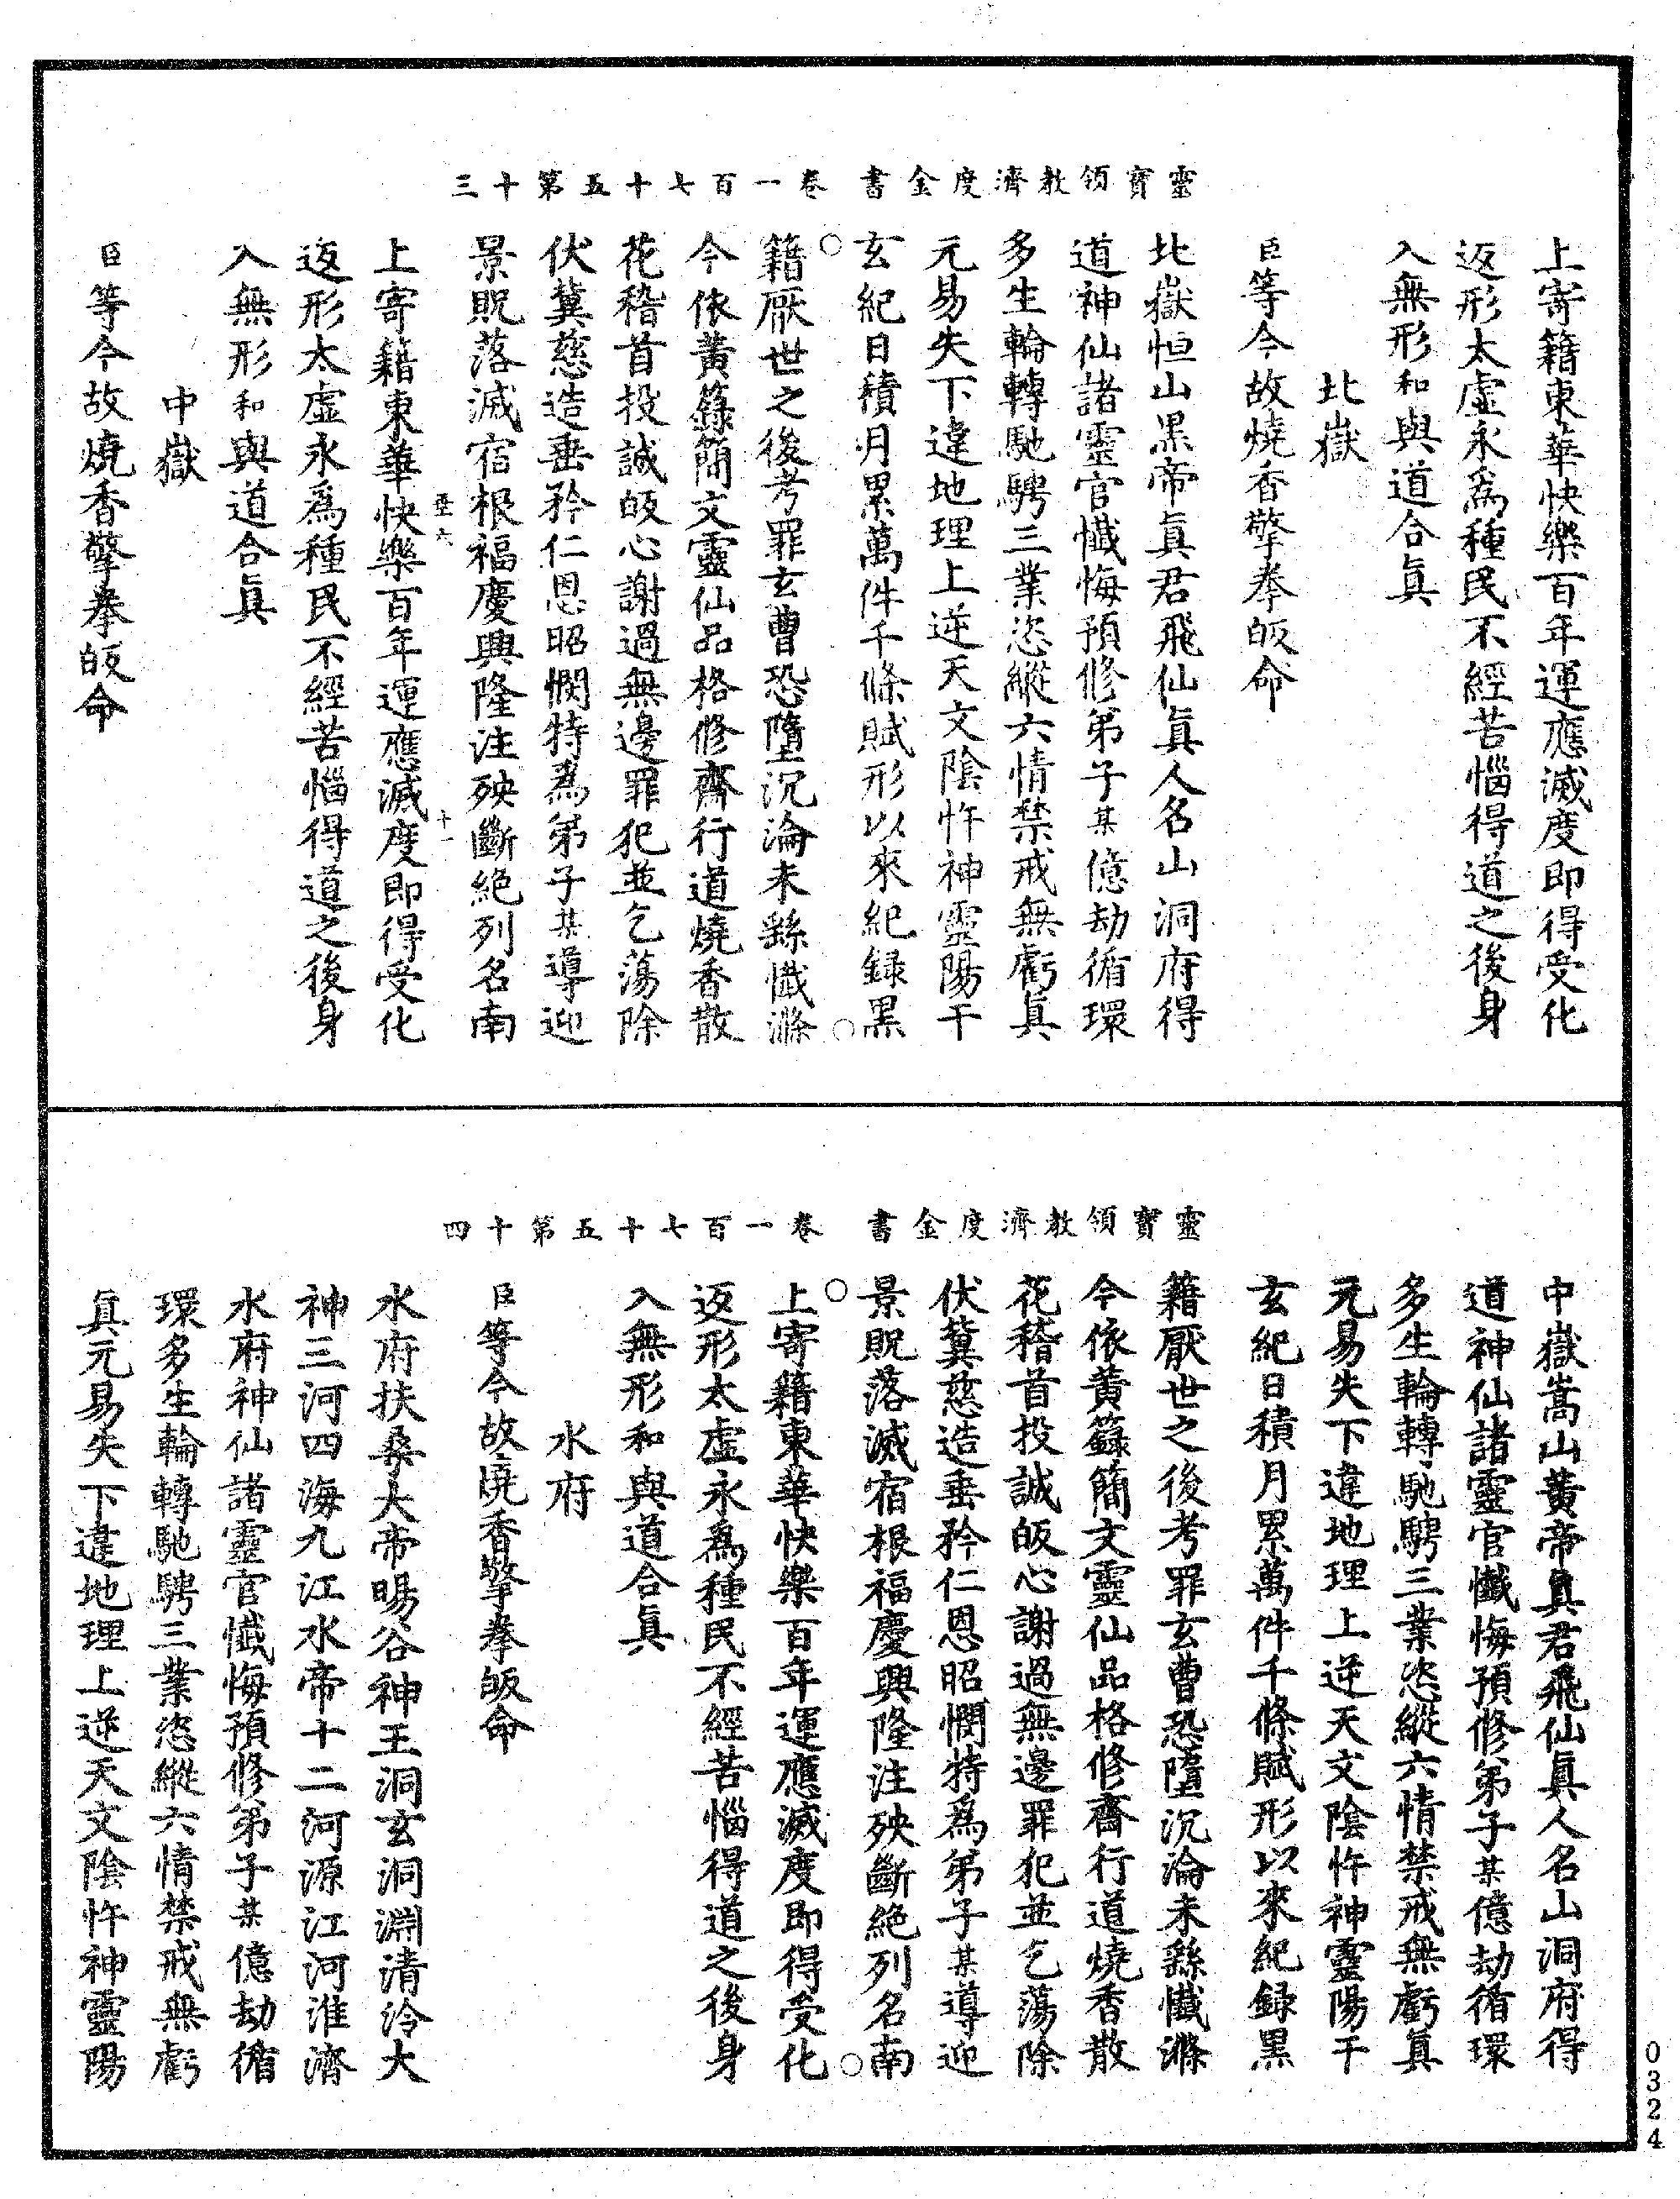 靈寶領教濟度金書　卷一百七十五第十三
上寄籍東華快樂百年運應滅度即得受化
返形太虛永為種民不經苦惱得道之後身
入無形和與道合眞
臣等今故燒香擎拳皈命
北嶽
北嶽恒山黑帝眞君飛仙眞人名山洞府得
道神仙諸靈官懺悔預修弟子某億劫循環
多生輪轉馳騁三業恣縱六情禁戒無虧眞
元易失下違地理上逆天文陰忤神靈陽干
玄紀日積月累萬件千條賦形以來紀錄黑
籍厭世之後考罪玄曹恐墮沉淪未繇懺滌
今依黃籙簡文靈仙品格修齋行道燒香散
花稽首投誠皈心謝過無邊罪犯並乞蕩除
伏冀慈造垂矜仁恩昭憫特為弟子某導迎
景貺落滅宿根福慶興隆注殃斷絕列名南
上寄籍東華快樂百年運應滅度即得受化
返形太虛永爲種民不經苦惱得道之後身
入無形和與道合眞
中嶽
臣等今故燒香擎拳皈命
靈寶領教濟度金書　卷一百七十五第十四
中嶽嵩山黃帝眞君飛仙眞人名山洞府得
道神仙諸靈官懺悔預修弟子某億劫循環
多生輪轉馳騁三業恣縱六情禁戒無虧眞
元易失下違地理上逆天文陰忤神靈陽干
玄紀日積月累萬件千條賦形以來紀錄黑
籍厭世之後考罪玄曹恐墮沉淪未繇懺滌
今依黃籙簡文靈仙品格修齋行道燒香散
花稽首投誠皈心謝過無邊罪犯並乞蕩除
伏冀慈造垂矜仁恩昭憫特為弟子某導迎
景貺落滅宿根福慶興隆注殃斷絕列名南
上寄籍東華快樂百年運應滅度即得受化
返形太虛永爲種民不經苦惱得道之後身
入無形和與道合眞
水府
臣等今故燒香擎拳皈命
水府扶桑大帝暘谷神王洞玄洞淵清泠大
神三河四海九江水帝十二河源江河淮濟
水府神仙諸靈官懺悔預修弟子某億劫循
環多生輪轉馳騁三業恣縱六情禁戒無虧
眞元易失下違地理上逆天文陰忤神靈陽
0324